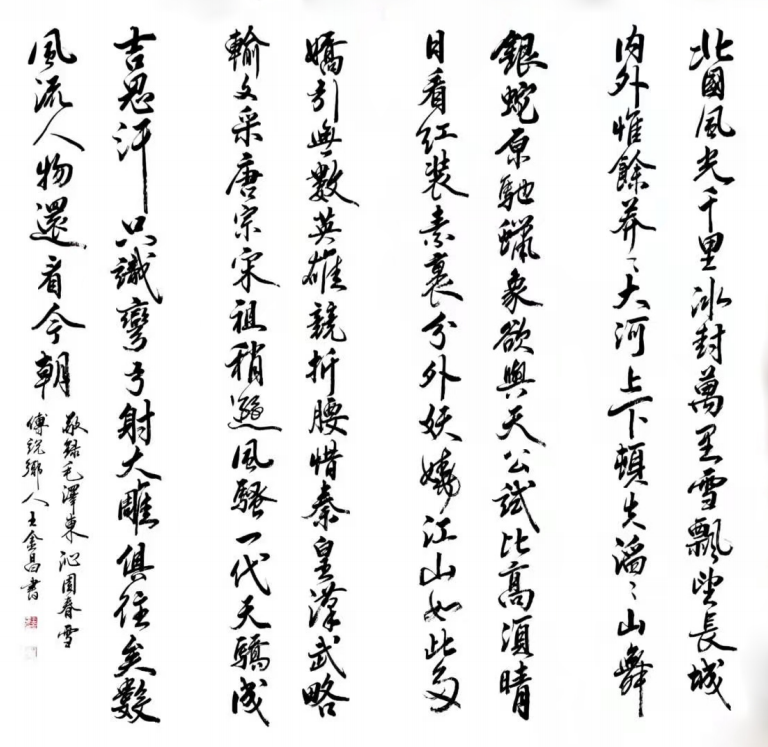 北國風光千里冰封萬里雪飄望長城
内外惟餘莽〻大河上下頓失滔〻山舞
銀蛇原馳蠟象欲與天公試比高須晴
日看红装素裹分外妖嬈江山如此多
嬌引無數英雄競折腰惜秦皇漢武略
輸文采唐宗宋祖稍遜風騷一代天驕成
吉思汗只識彎弓射大雕俱往矣數
風流人物還看今朝
敬録毛澤東沁園春雪
傅説鄉人王金昌書